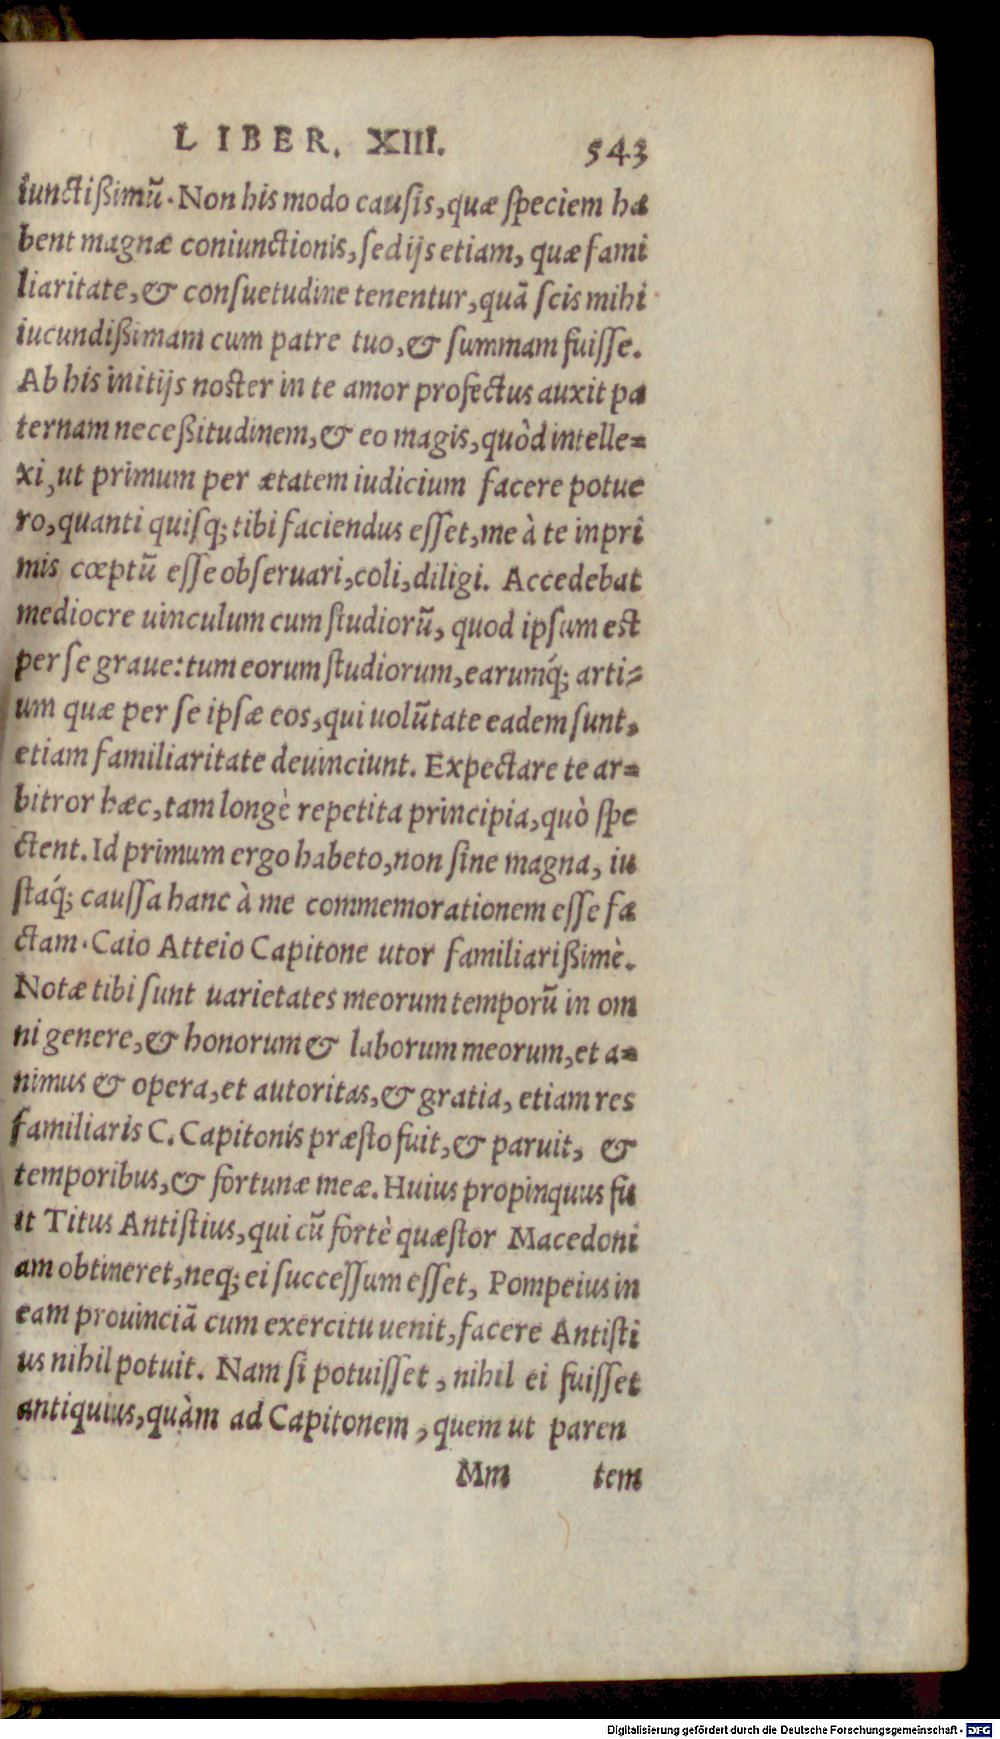 LIBER. XIII. 543
iunctißimũ. Non his modo causis, quæ speciem ha
bent magnæ coniunctionis, sed ijs etiam, quæ fami
liaritate, & consuetudine tenentur, quã scis mihi
iucundißimam cum patre tuo, & summam fuisse.
Ab his initijs noster in te amor profectus auxit pa
ternam neceßitudinem, & eo magis, quòd intelle=
xi, ut primum per ætatem iudicium facere potue
ro, quanti quisq; tibi faciendus esset, me à te in pri
mis cœptũ esse obseruari, coli, diligi. Accedebat
mediocre uinculum cum studiorũ, quod ipsum est
per se graue: tum eorum studiorum, earumq́; arti=
um quæ per se ipsæ eos, qui uolũtate eadem sunt,
etiam familiaritate deuinciunt. Expectare te ar=
bitror hæc, tam longè repetita principia, quò spe
ctent. Id primum ergo habeto, non sine magna, iu
staq́; caussa hanc à me commemorationem esse fa
ctam. Caio Atteio Capitone utor familiarißimè.
Notæ tibi sunt uarietates meorum temporũ in om
ni genere, & honorum & laborum meorum, et a=
nimus & opera, et autoritas, & gratia, etiam res
familiaris C. Capitonis præsto fuit, & paruit, &
temporibus, & fortunæ meæ. Huius propinquus fu
it Titus Antistius, qui cũ fortè quæstor Macedoni
am obtineret, neq; ei successum esset, Pompeius in
eam prouinciã cum exercitu uenit, facere Antisti
us nihil potuit. Nam si potuisset, nihil ei fuisset
antiquius, quàm ad Capitonem, quem ut paren
Mm tem
Digitalisierung gefördert durch die Deutsche Forschungsgemeinschaft - DFG